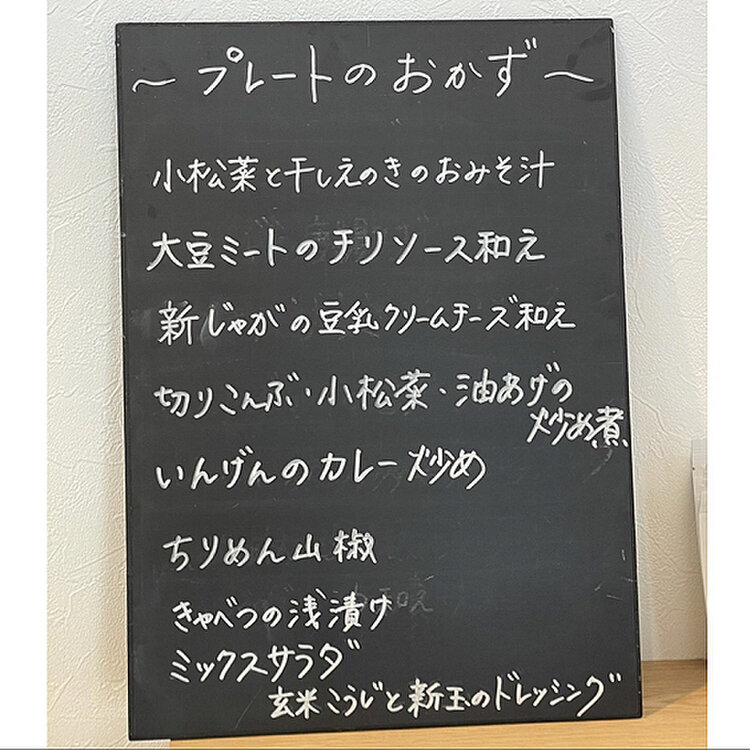 ～プレートのおかず～
小松菜と干しえのきのおみそ汁
大豆ミートのチリソース和え
新じゃがの豆乳クリームチーズ和え
切りこんぶ・小松菜・油あげの
炒め煮
いんげんのカレー炒め
ちりめん山椒
きゃべつの浅漬け
ミックスサラダ
玄米こうじと新玉のドレッシング